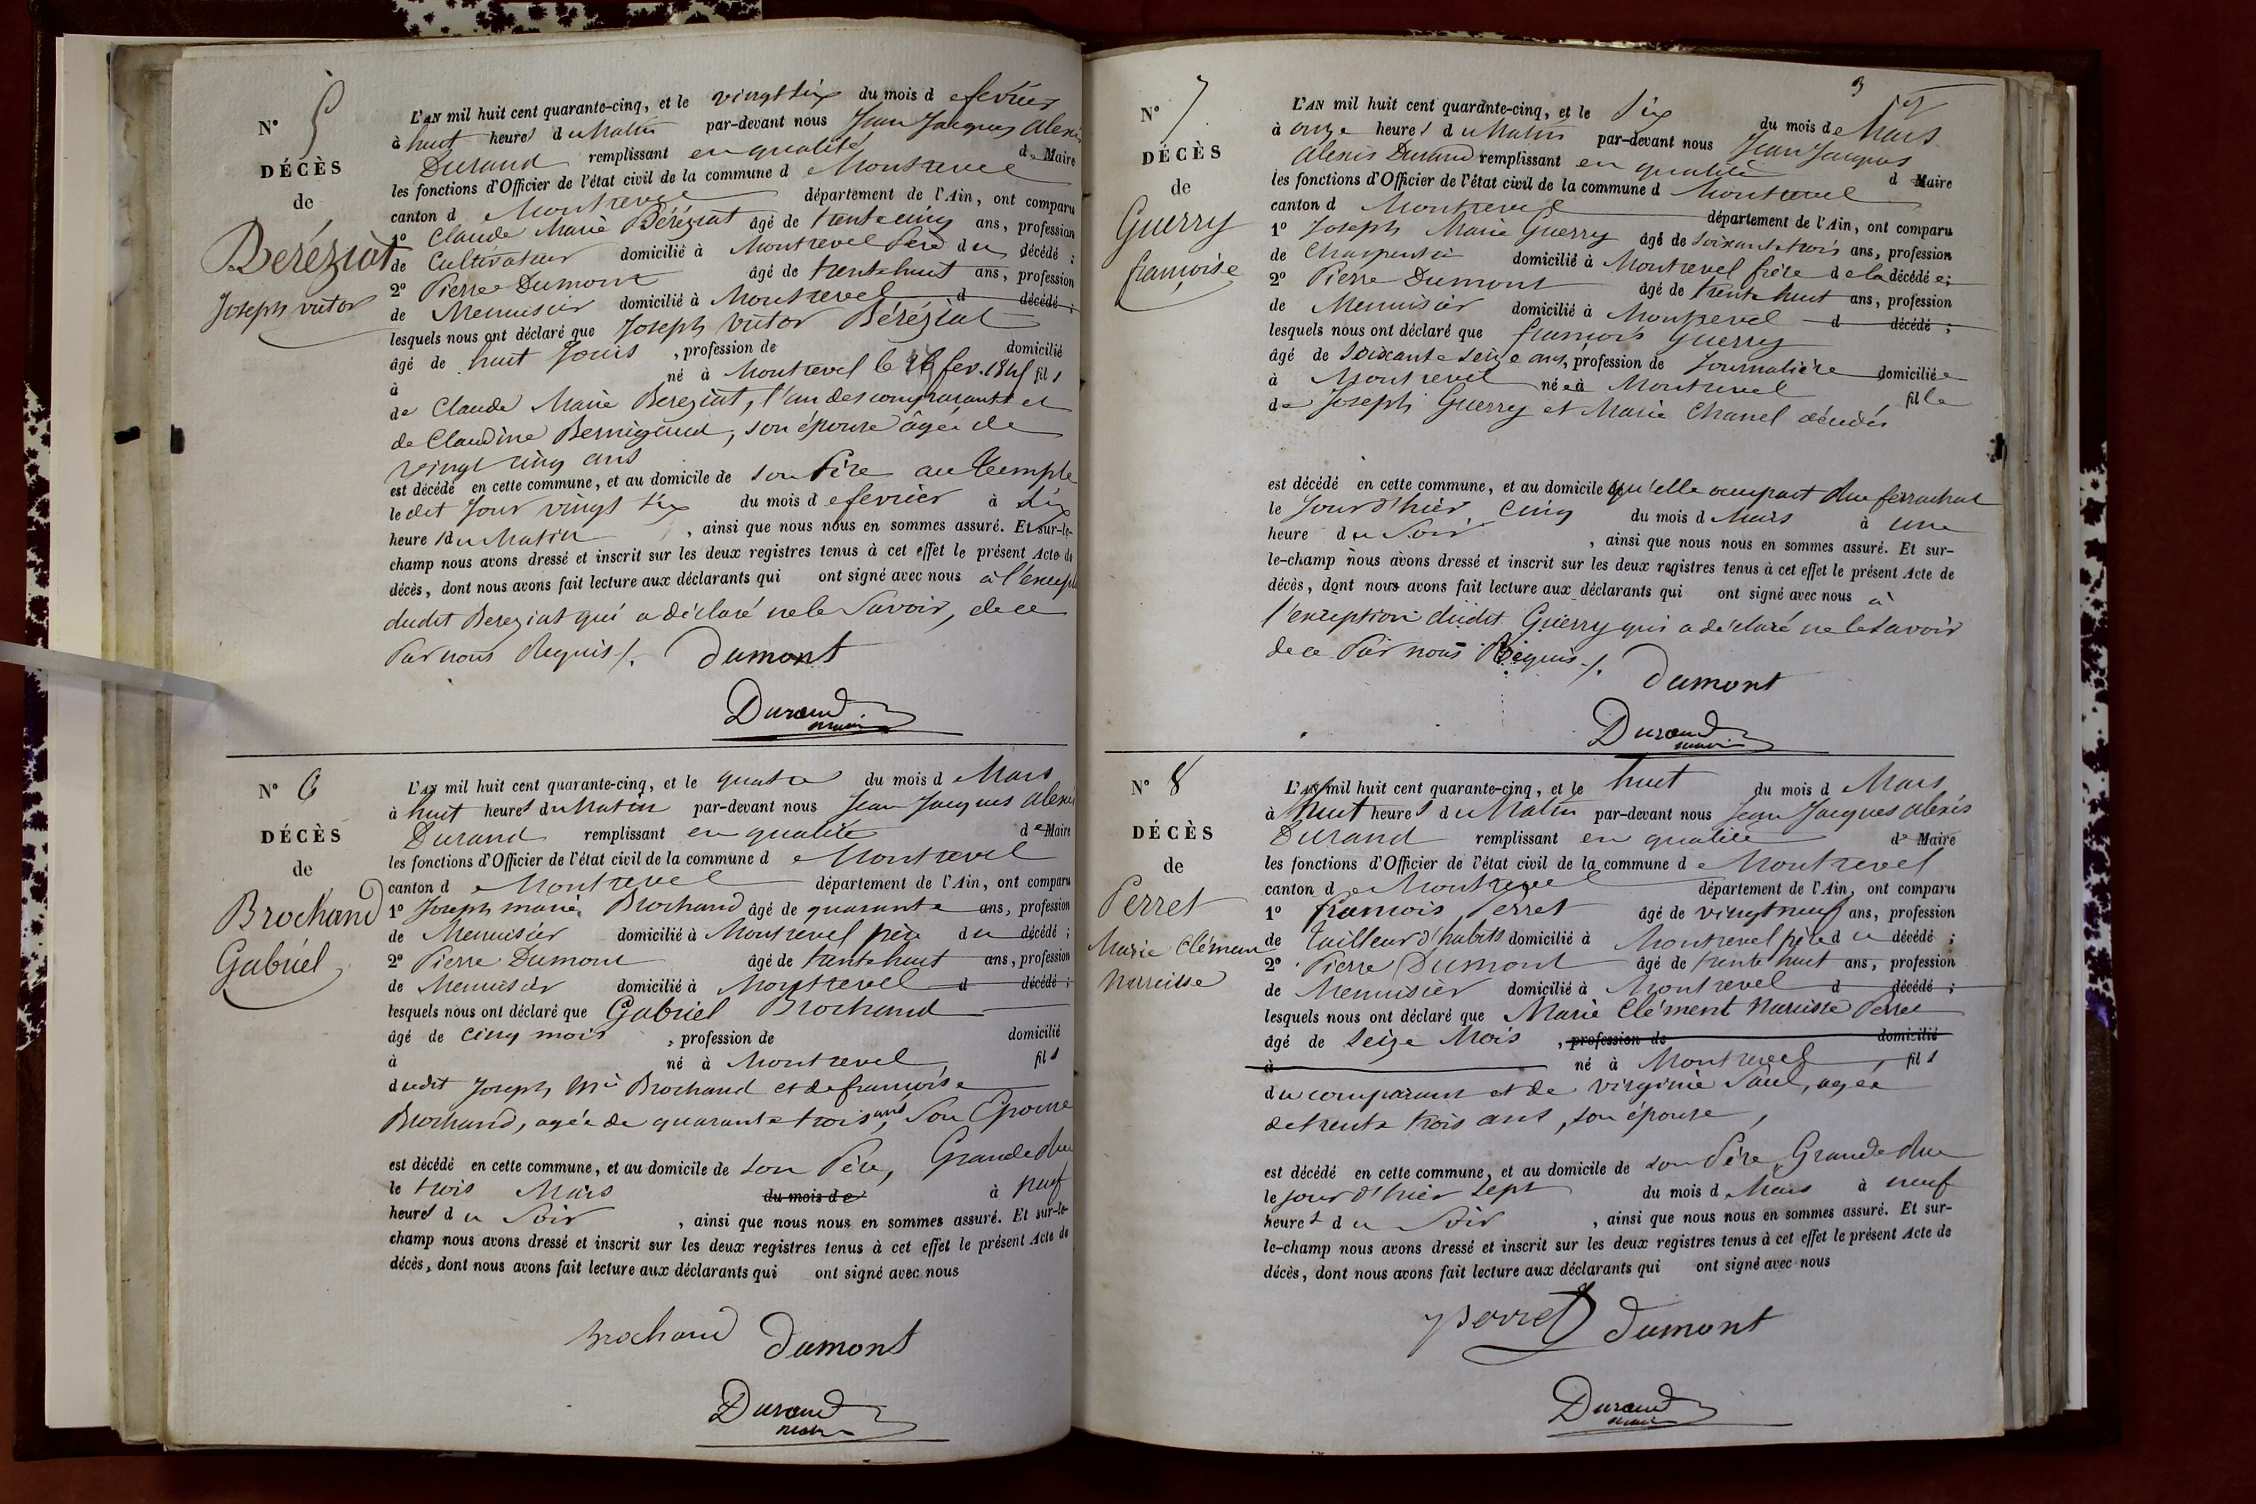 N° 5
DÉCÈS
de
Beréziat
Joseph victor
L'AN mil huit cent quarante-cinq, et le vingt six du mois de fevrier
à huit heures du Matin par-devant nous Jean Jacques Alexis
Durand remplissant en qualité de Maire
les fonctions d'Officier de l'état civil de la commune de Montrevel
canton de Montrevel département de l'Ain, ont comparu
1° Claude Marie Béréziat âgé de trente cinq ans, profession
de Cultivateur domicilié à Montrevel Père du décédé ;
2° Pierre Dumont âgé de trente huit ans, profession
de Menuisier domicilié à Montrevel d décédé ;
lesquels nous ont déclaré que Joseph Victor Béréziat
âgé de huit Jours , profession de domicilié
à né à Montrevel le fev. 1845 fils
de Claude Marie Bereziat, l'un des comparants et
de Claudine Bernigaud, son épouse âgée de
vingt cinq ans
est décédé en cette commune, et au domicile de son Père au temple
le dit Jour vingt six du mois de fevrier à six
heures du Matin , ainsi que nous nous en sommes assuré. Et sur-le-
champ nous avons dressé et inscrit sur les deux registres tenus à cet effet le présent Acte de
décès, dont nous avons fait lecture aux déclarants qui ont signé avec nous à l'exception
dudit Bereziat qui a déclaré ne le Savoir, de ce
Par nous Requis /. Dumont
Durand
maire
N° 6
DÉCÈS
de
Brochand
Gabriel
L'AN mil huit cent quarante-cinq, et le quatre du mois de Mars
à huit heures du Matin par-devant nous Jean Jacques Alexis
Durand remplissant en qualité de Maire
les fonctions d'Officier de l'état civil de la commune de Montrevel
canton de Montrevel département de l'Ain, ont comparu
1° Joseph marie Brochand âgé de quarante ans, profession
de Menuisier domicilié à Montrevel père du décédé ;
2° Pierre Dumont âgé de trente huit ans, profession
de Menuisier domicilié à Montrevel d décédé ;
lesquels nous ont déclaré que Gabriel Brochand
âgé de cinq mois , profession de domicilié
à né à Montrevel, fils
dudit Joseph Mie Brochand et de françoise
Brochand, agée de quarante trois ans, Son Epouse
est décédé en cette commune, et au domicile de son Père, Grande Rue
le trois Mars du mois de à neuf
heures du Soir , ainsi que nous nous en sommes assuré. Et sur-le-
champ nous avons dressé et inscrit sur les deux registres tenus à cet effet le présent Acte de
décès, dont nous avons fait lecture aux déclarants qui ont signé avec nous
Brochand Dumont
Durand
maire
3
N° 7
DÉCÈS
de
Guerry
françoise
L'AN mil huit cent quarante-cinq, et le Six du mois de Mars
à onze heures du Matin par-devant nous Jean Jacques
Alexis Durand remplissant en qualité d Maire
les fonctions d'Officier de l'état civil de la commune d Montrevel
canton d Montrevel département de l'Ain, ont comparu
1° Joseph Marie Guerry âgé de soixante trois ans, profession
de Charpentier domicilié à Montrevel frère de la décédée ;
2° Pierre Dumont âgé de trente huit ans, profession
de Menuisier domicilié à Montrevel d décédé ;
lesquels nous ont déclaré que françois Guerry
âgé de soixante seize ans, profession de Journalière domiciliée
à Montrevel née à Montrevel fille
de Joseph Guerry et Marie Chanel décédés
est décédé en cette commune, et au domicile qu'elle occupait Rue ferrachat
le Jour d'hier cinq du mois d Mars à une
heure du Soir , ainsi que nous nous en sommes assuré. Et sur-
le-champ nous avons dressé et inscrit sur les deux registres tenus à cet effet le présent Acte de
décès, dont nous avons fait lecture aux déclarants qui ont signé avec nous à
l'exception dudit Guerry qui a déclaré ne le Savoir
de ce Par nous Requis /. Dumont
Durand
maire
N° 8
DÉCÈS
de
Perret
Marie Clément
Narcisse
L'AN mil huit cent quarante-cinq, et le huit du mois d Mars
à huit heures du Matin par-devant nous Jean Jacques Alexis
Durand remplissant en qualité de Maire
les fonctions d'Officier de l'état civil de la commune de Montrevel
canton de Montrevel département de l'Ain, ont comparu
1° francois Perret âgé de vingt neuf ans, profession
de tailleur d'habits domicilié à Montrevel père du décédé ;
2° Pierre Dumont âgé de trente huit ans, profession
de Menuisier domicilié à Montrevel d décédé ;
lesquels nous ont déclaré que Marie Clément Narcisse Perret
âgé de seize Mois , profession de domicilié
à né à Montrevel, fils
du comparant et de Virginie Paul, agée
de trente trois ans, son épouse,
est décédé en cette commune, et au domicile de son Père, Grande Rue
le jour d'hier sept du mois d Mars à neuf
heures du Soir , ainsi que nous nous en sommes assuré. Et sur-
le-champ nous avons dressé et inscrit sur les deux registres tenus à cet effet le présent Acte de
décès, dont nous avons fait lecture aux déclarants qui ont signé avec nous
Perret Dumont
Durand
maire